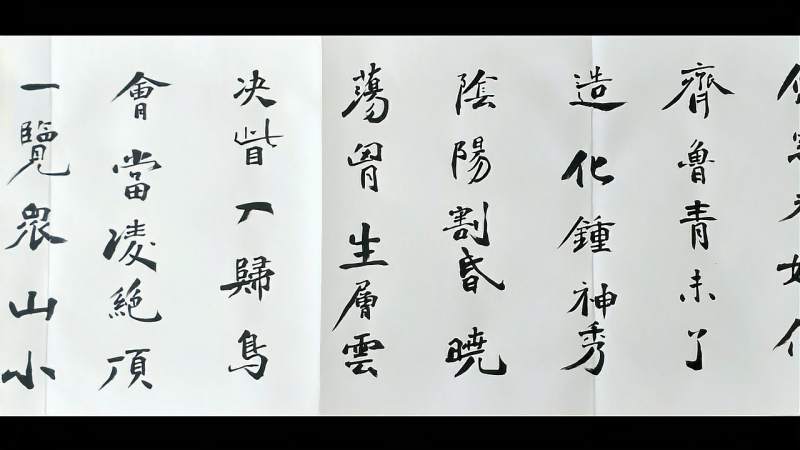 齊魯青未了
造化鍾神秀
陰陽割昏曉
蕩胷生層雲
决眥入歸鳥
會當凌絶頂
一覽眾山小